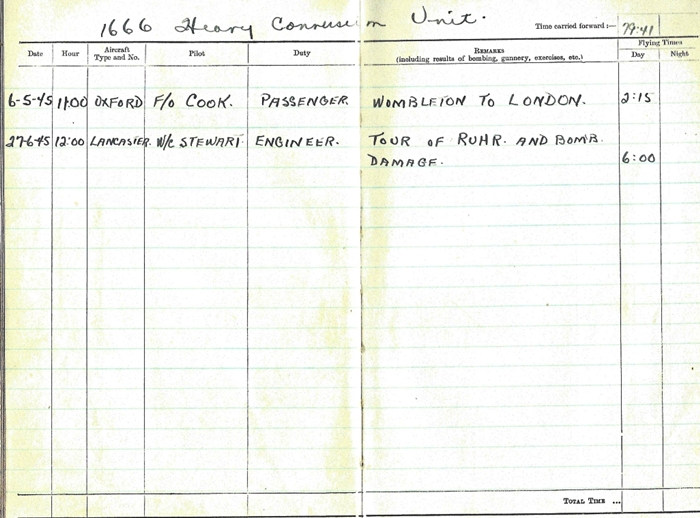 1666 Heavy Conversion Unit.
Time carried forward :— 79:41
Date Hour Aircraft Type and No. Pilot Duty Remarks (including results of bombing, gunnery, exercises, etc.) Flying Times Day Night
6-5-45 11:00 OXFORD F/O COOK. PASSENGER. WOMBLETON TO LONDON. 2:15
27-6-45 12:00 LANCASTER. W/C STEWART ENGINEER. TOUR OF RUHR. AND BOMB.
DAMAGE. 6:00
TOTAL TIME ...